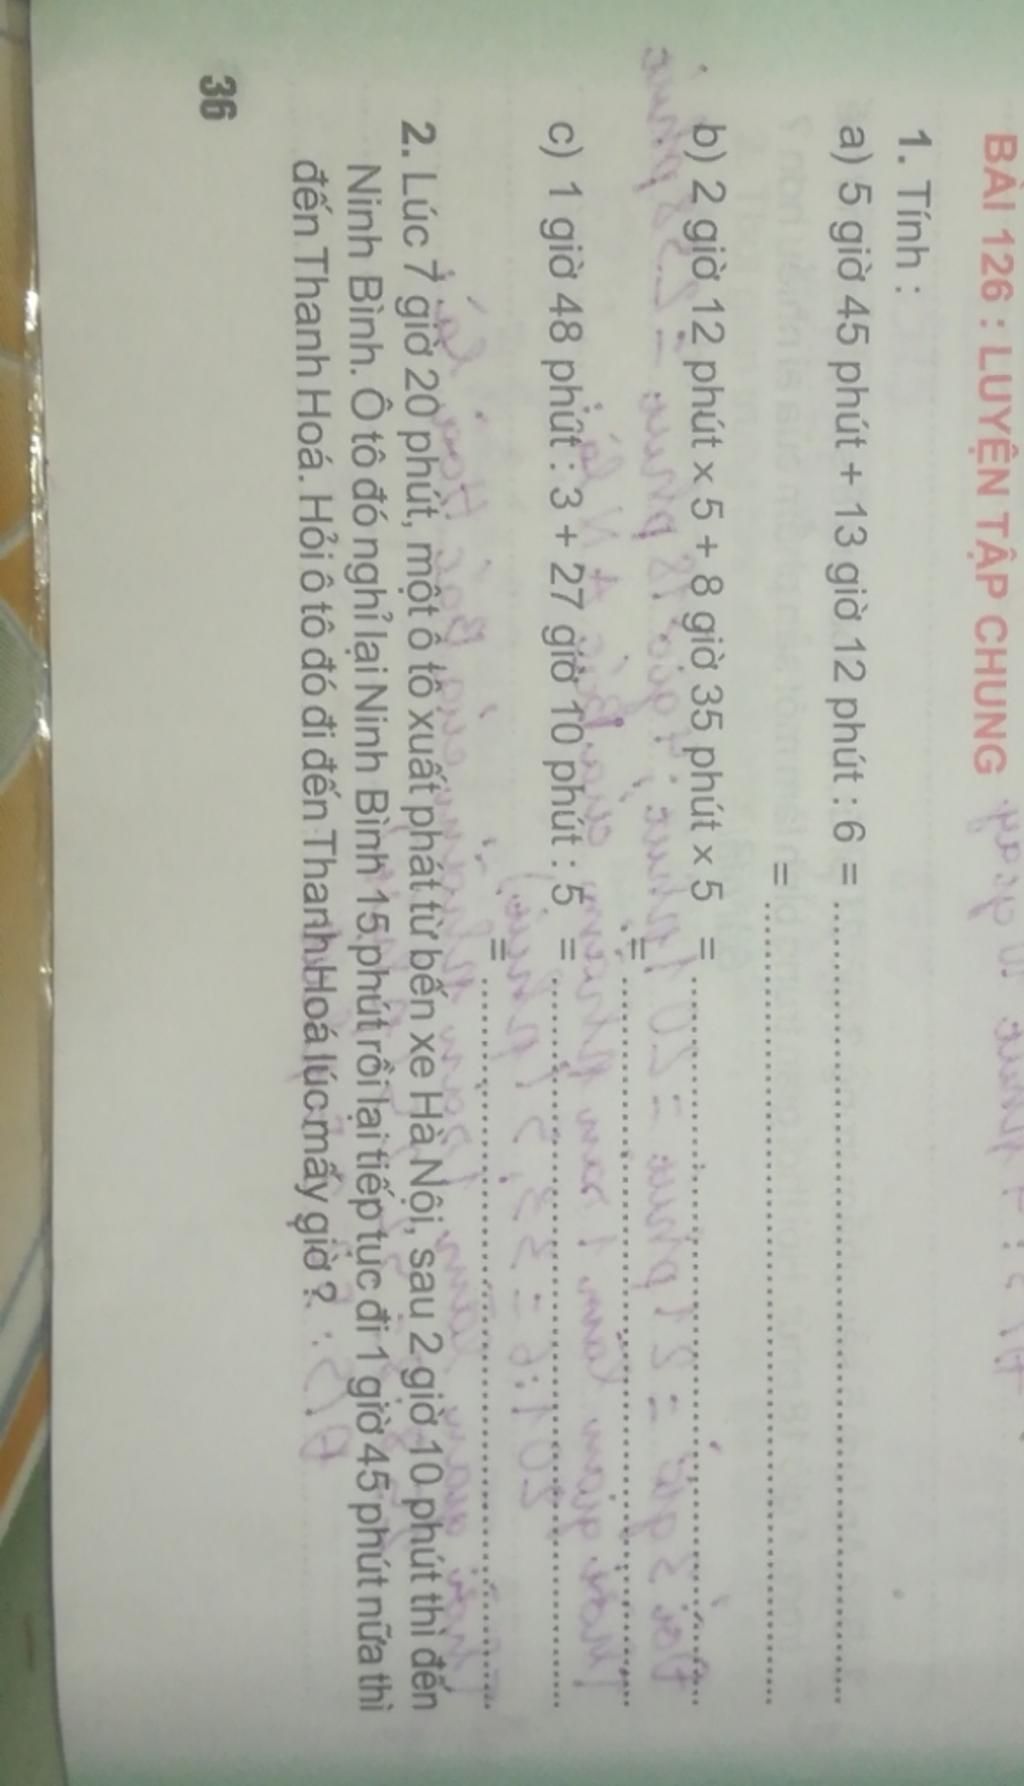 BÀI 126 : LUYỆN TẬP CHUNG
1. Tính :
a) 5 giờ 45 phút + 13 giờ 12 phút : 6 = ........................
= ........................
b) 2 giờ 12 phút x 5 + 8 giờ 35 phút x 5 = ........................
= ........................
c) 1 giờ 48 phút : 3 + 27 giờ 10 phút : 5 = ........................
= ........................
2. Lúc 7 giờ 20 phút, một ô tô xuất phát từ bến xe Hà Nội, sau 2 giờ 10 phút thì đến
Ninh Bình. Ô tô đó nghỉ lại Ninh Bình 15 phút rồi lại tiếp tục đi 1 giờ 45 phút nữa thì
đến Thanh Hoá. Hỏi ô tô đó đi đến Thanh Hoá lúc mấy giờ ?
36